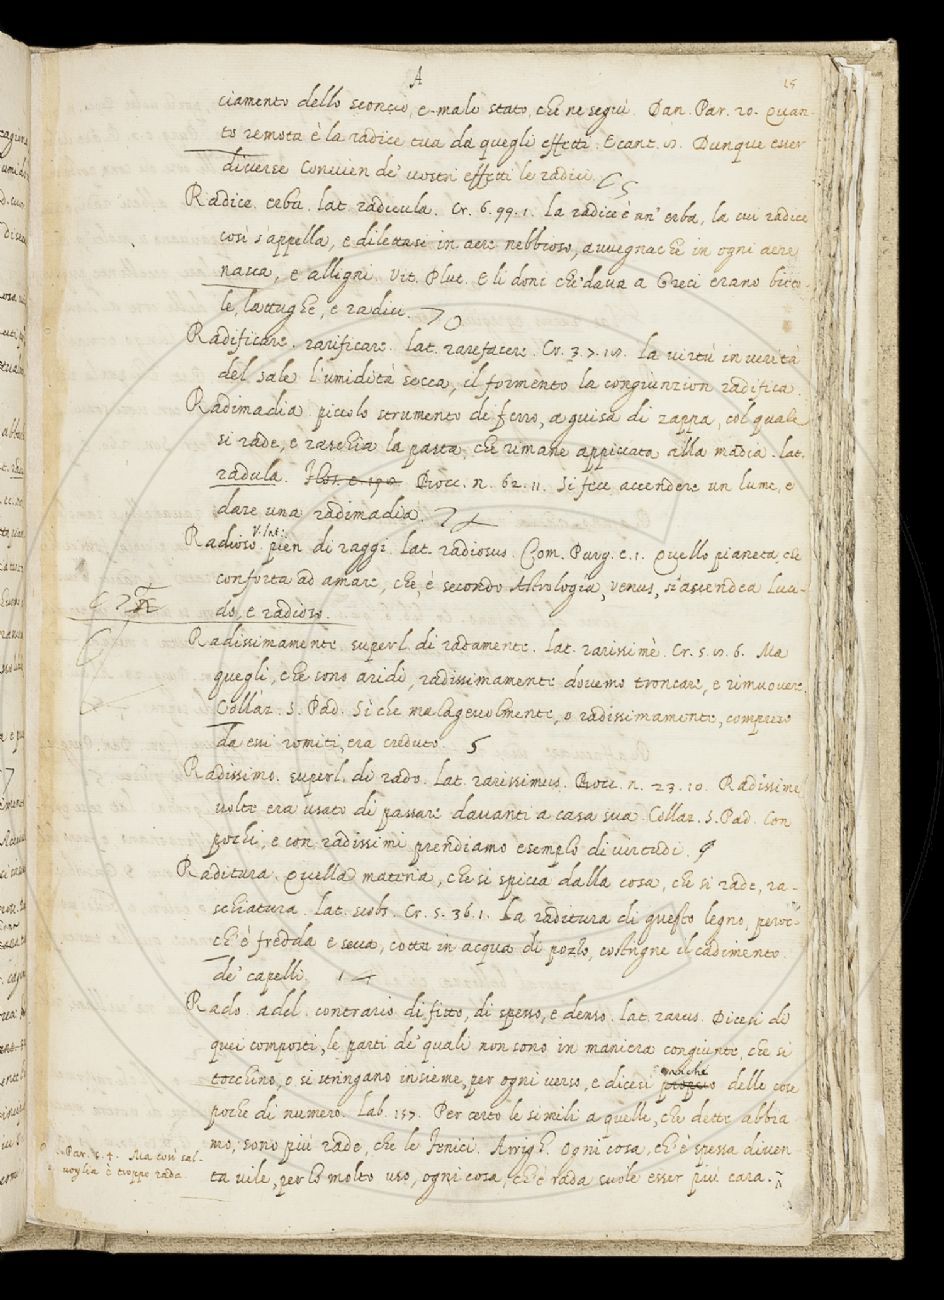 A
15
ciamento dello sconcio, e malo stato, che ne seguì. Dan. Par. 20. Quan-
to remota è la radice tua da quegli effetti. E cant. Dunque esser
diverse convien de' vostri effetti le radici.
Radice. erba. lat. radicula. Cr. 6. 99. 1. La radice è un' erba, la cui radice
così s'appella, e dilettasi in aere nebbioso, avvegnachè in ogni aere
nasca, e alligni. Vit. Plut. E li doni che dava a Greci erano bieto-
le, lattughe, e radici.
Radificare. rarificare. lat. rarefacere. Cr. 3. 7. La virtù in verità
del sale l'umidità secca, e il formento la congiunzion radifica.
Radimadia. piccolo strumento di ferro, a guisa di zappa, col quale
si rade, e raschia la pasta, che rimane appiccata alla madia. lat.
radula. Bocc. n. 62. 11. Si fece accendere un lume, e
dare una radimadia.
Radioso. pien di raggi. lat. radiosus. Com. Purg. c. 1. Quello pianeta, che
conforta ad amare, che, è secondo Astrologia, Venus, si ascendea luci-
do, e radioso.
Radissimamente. superl. di radamente. lat. rarissimè. Cr. 5. 6. Ma
quegli, che sono aridi, radissimamente dovemo troncare, e rimuovere.
Collaz. S. Pad. Sì che malagevolmente, o radissimamente, compreso
da essi romiti, era creduto. 5
Radissimo. superl. di rado. lat. rarissimus. Bocc. n. 23. 10. Radissime
volte era usato di passare davanti a casa sua. Collaz. S. Pad. Con
pochi, e con radissimi prendiamo esemplo di virtudi.
Raditura. Quella materia, che si spicca dalla cosa, che si rade, ra-
schiatura. lat. scobs. Cr. 5. 36. 1. La raditura di questo legno, peroc-
ch' è fredda e secca, cotta in acqua di pozzo, costrigne il cadimento
de' capelli.
Rado. add. contrario di fitto, di spesso, e denso. lat. rarus. Dicesi di
quei composti, le parti de' quali non sono in maniera congiunte, che si
tocchino, o si stringano insieme, per ogni verso, e dicesi anche delle cose
poche di numero. Lab. 157. Per certo le simili a quelle, che dette abbia-
mo, sono più rade, che le Fenici. Arrigh. Ogni cosa, ch' è spessa diven-
ta vile, per lo molto uso, ogni cosa, ch' è rada suole esser più cara.
Par. Ma così sal-
voglia è troppo rada